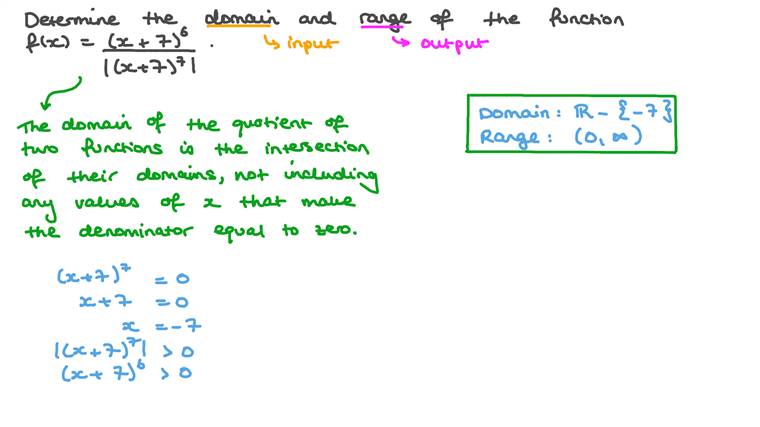 Determine the domain and range of the function
f(x) = (x + 7)⁶ / |(x+7)⁷| .
↳ input
↳ output
The domain of the quotient of
two functions is the intersection
of their domains, not including
any values of x that make
the denominator equal to zero.
(x+7)⁷ = 0
x + 7 = 0
x = -7
|(x+7)⁷| > 0
(x + 7)⁶ > 0
Domain: ℝ - {-7}
Range: (0, ∞)